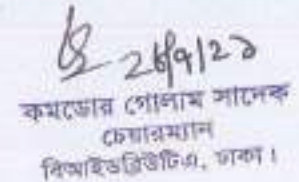 ২৮/৭/২১
কমডোর গোলাম সাদেক
চেয়ারম্যান
বিআইডব্লিউটিএ, ঢাকা।